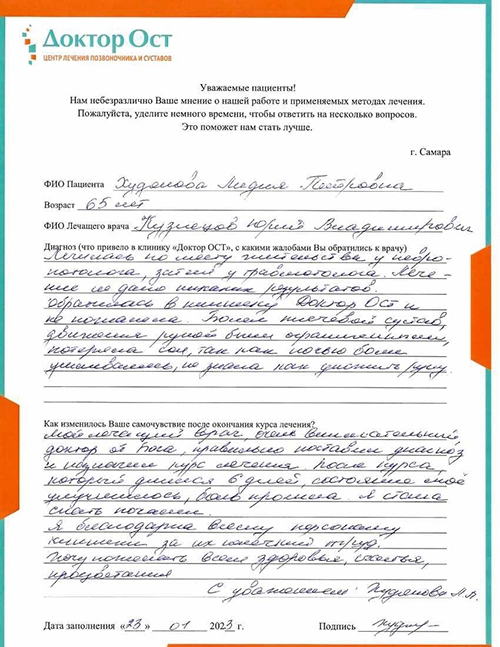 Доктор Ост
ЦЕНТР ЛЕЧЕНИЯ ПОЗВОНОЧНИКА И СУСТАВОВ
Уважаемые пациенты!
Нам небезразлично Ваше мнение о нашей работе и применяемых методах лечения.
Пожалуйста, уделите немного времени, чтобы ответить на несколько вопросов.
Это поможет нам стать лучше.
г. Самара
ФИО Пациента Худякова Лидия Петровна
Возраст 65 лет
ФИО Лечащего врача Кузнецов Юрий Владимирович
Диагноз (что привело в клинику «Доктор ОСТ», с какими жалобами Вы обратились к врачу)
Лечилась по месту жительства у невро-
патолога, затем у травматолога. Лече-
ние не дало никаких результатов.
Обратилась в клинику Доктор Ост и
не пожалела. Болел плечевой сустав,
движения рукой были ограничены,
потеряла сон, так как ночью боли
усиливались, не знала как уложить руку.
Как изменилось Ваше самочувствие после окончания курса лечения?
Мой лечащий врач, очень внимательный,
доктор от Бога, правильно поставил диагноз
и назначил курс лечения. После курса,
который длился 6 дней, состояние моё
улучшилось, боль прошла. Я стала
спать ночами.
Я благодарна всему персоналу
клиники за их нелегкий труд.
Хочу пожелать всем здоровья, счастья,
процветания
С уважением: Худякова Л.П.
Дата заполнения «23» 01 2023 г.
Подпись